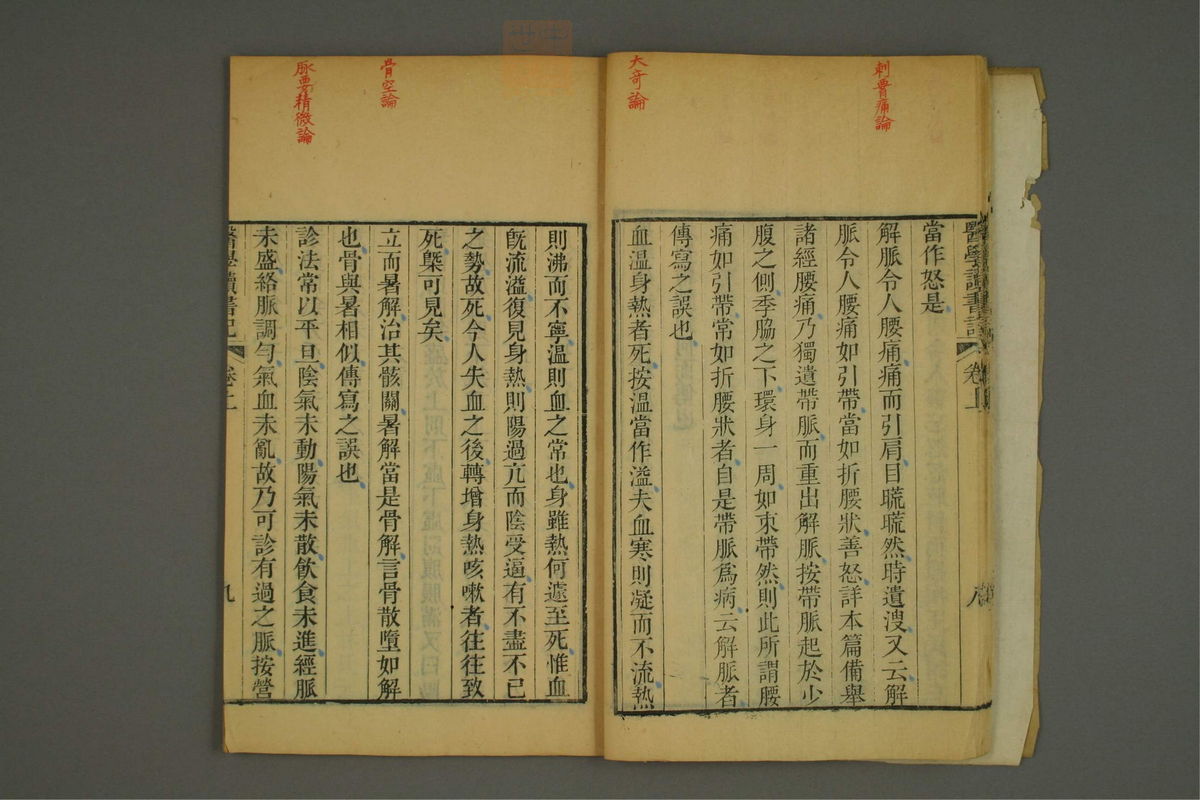 刺腰痛論
大奇論
醫學讀書記 卷上
當作怒是
解脈令人腰痛痛而引肩目𥇀𥇀然時遺溲又云解
脈令人腰痛如引帶當如折腰狀善怒詳本篇備舉
諸經腰痛乃獨遺帶脈而重出解脈按帶脈起於少
腹之側季脇之下環身一周如束帶然則此所謂腰
痛如引帶常如折腰狀者自是帶脈爲病云解脈者
傳寫之誤也
血温身熱者死按温當作溢夫血寒則凝而不流熱
骨空論
脉要精微論
則沸而不寧温則血之常也身雖熱何遽至死惟血
既流溢復見身熱則陽過亢而陰受逼有不盡不已
之勢故死今人失血之後轉增身熱咳嗽者往往致
死槩可見矣
立而暑解治其骸關暑解當是骨解言骨散墮如解
也骨與暑相似傳寫之誤也
診法常以平旦陰氣未動陽氣未散飲食未進經脈
未盛絡脈調勻氣血未亂故乃可診有過之脈按營
醫學讀書記 卷上 九